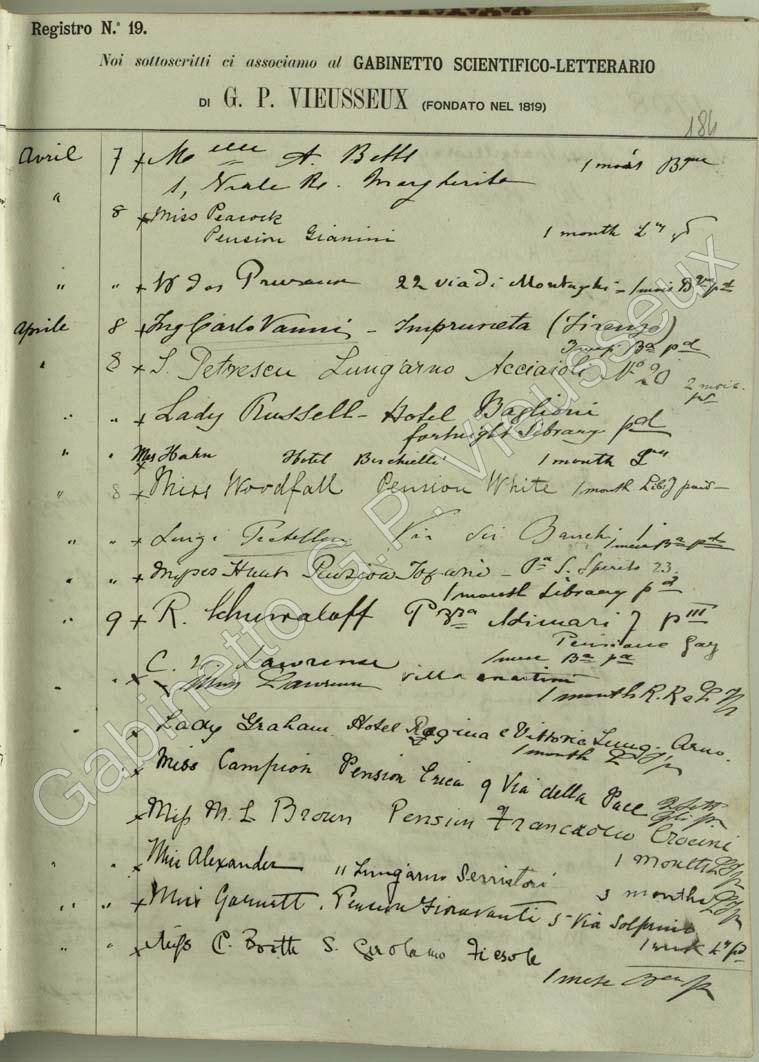 Registro N.° 19.
Noi sottoscritti ci associamo al GABINETTO SCIENTIFICO-LETTERARIO
DI G. P. VIEUSSEUX (FONDATO NEL 1819)
186
Avril 7 x Melle A. Betts 1 mois Bque
1, Viale Re. Margherita
" 8 x Miss Peacock
Pension Gianini 1 month Ly
" " x W dos 22 via di Montughi - 1 mois pd
Aprile 8 x Ing Carlo Vanni - Impruneta (Firenze)
Ba pd
" 8 x S. Petrescu Lungarno Acciaioli No 20 2 mois
" " x Lady Russell - Hotel Baglioni
fortnight Library pd
" " x Mrs Hahn Hotel Berchielli 1 month Ly
" 8 x Miss Woodfall Pension White 1 month Liby paid -
" " x Luigi Via dei Banchi 1
1 mese Ba pd
" " x S. Spirito 23
1 month Library pd
" 9 x R. Pzza Adimari pIII
Pensione Gay
1 mese Ba pd
x C. Lawrense
Miss Lawrense Villa 1 month R.R &
" x Lady Graham Hotel Regina e Vittoria Lung. Arno.
1 month
x Miss Campion Pension Erica 9 Via della Pace
x Miss M. L Brown Pension Crocini
1 month
" " x Miss Alexander 11 Lungarno Serristori
3 months
" " " x Miss Garnett. Pension Fioravanti 5 Via Solferino
1 week Ly pd
" " x Miss C. Booth S. Girolamo Fiesole
1 mese
Gabinetto G.P. Vieusseux